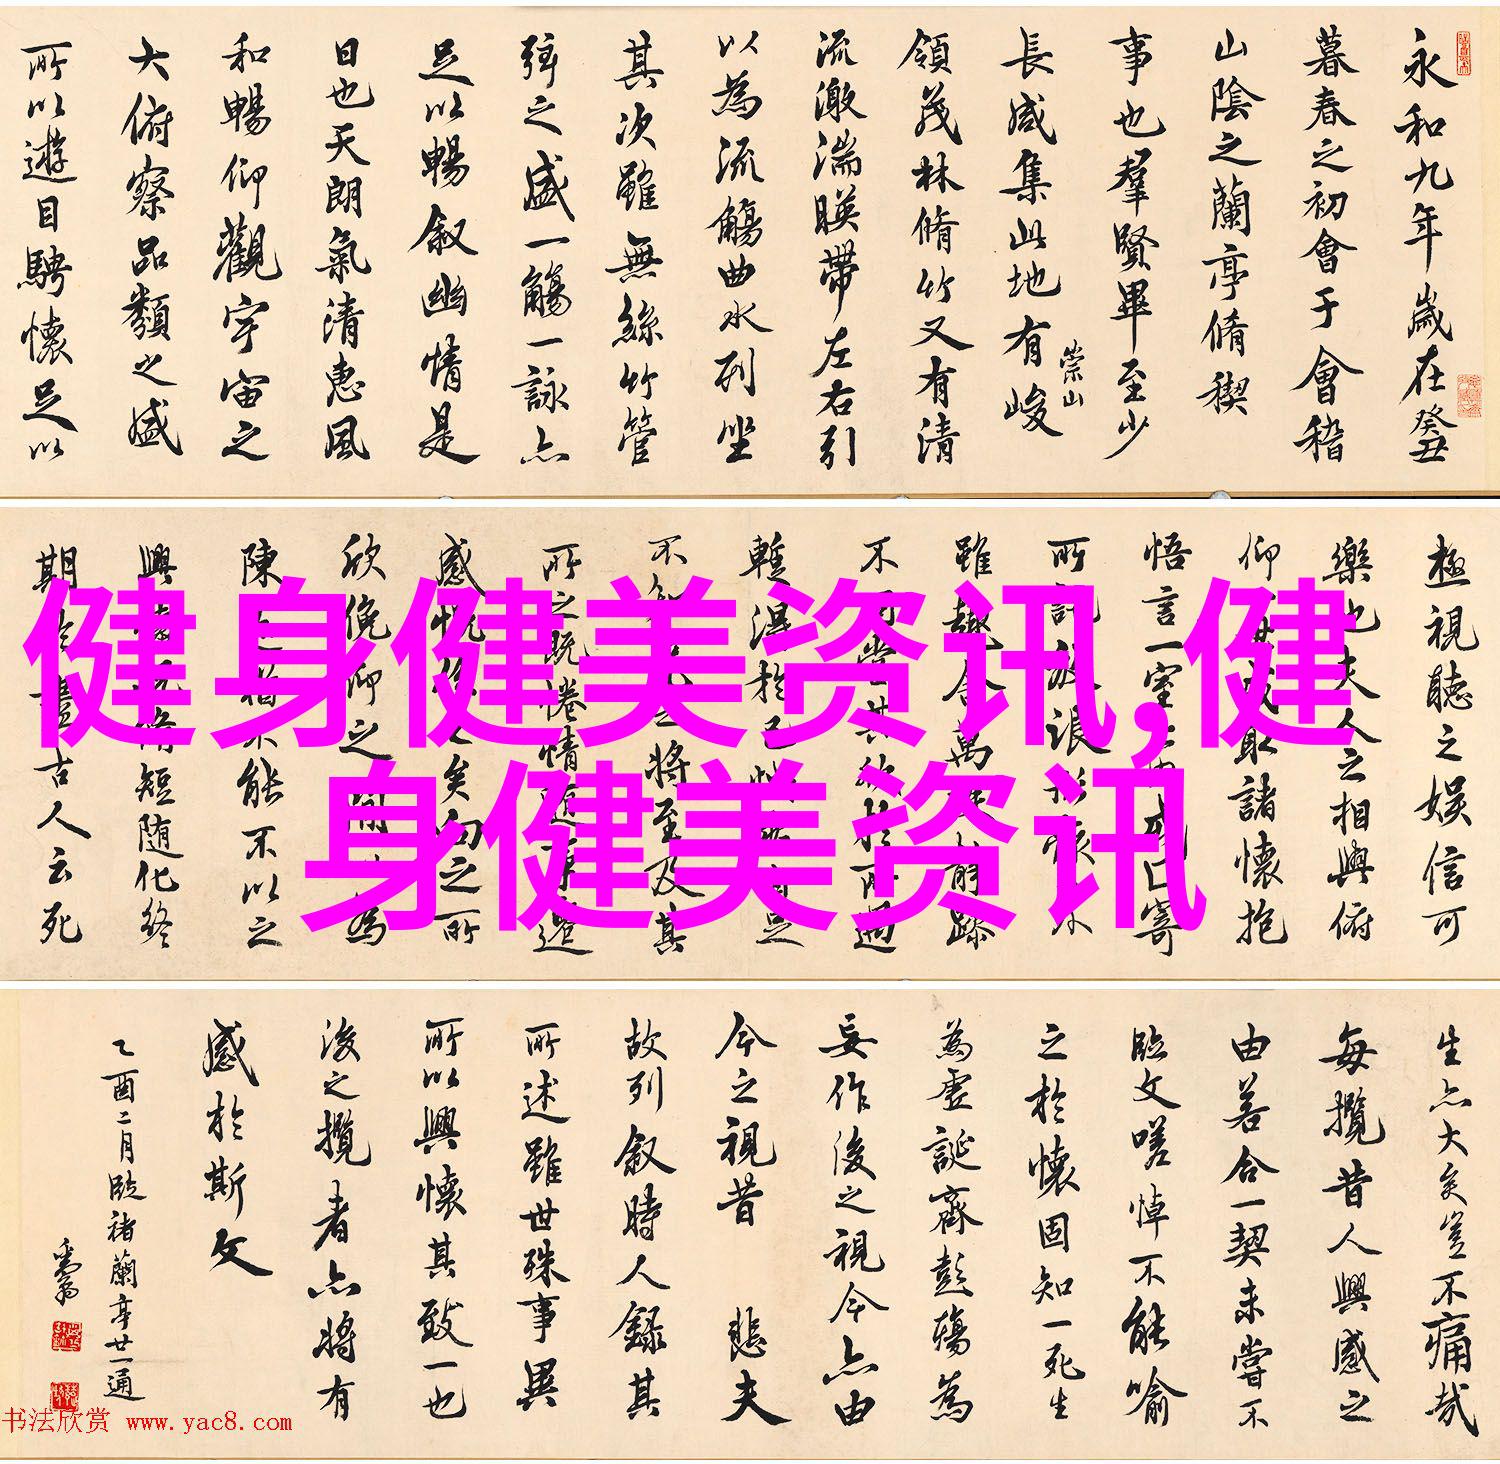 永和九年歲在癸丑
暮春之初會于會稽
山陰之蘭亭脩稧
事也羣賢畢至少
長咸集此地有峻
崇山
領茂林脩竹又有清
流激湍暎帶左右引
以為流觴曲水列坐
其次雖無絲竹管
弦之盛一觴一詠亦
足以暢叙幽情是
日也天朗氣清惠風
和暢仰觀宇宙之
大俯察品類之盛
所以遊目騁懷足以
極視聽之娛信可
樂也夫人之相與俯
仰取諸懷抱
悟言一室寄
所浪
雖趣舍萬躁
不於所遇
暫得於己
不之將至及其
所之既惓情隨遷
感矣向之所
欣俛仰之為
陳能不以之
興脩短随化終
期古人云死
生亦大矣豈不痛哉
每攬昔人興感之
由若合一契未嘗不
臨文嗟悼不能喻
之於懷固知一死生
為虛誕齊彭殤為
妄作後之視今亦由
今之視昔 悲夫
故列叙時人錄其
所述雖世殊事異
所以興懷其致一也
後之攬者亦將有
感於斯文
乙酉二月臨褚蘭亭廿一通
健身健美资讯,健
身健美资讯
书法欣赏 www.yac8.com